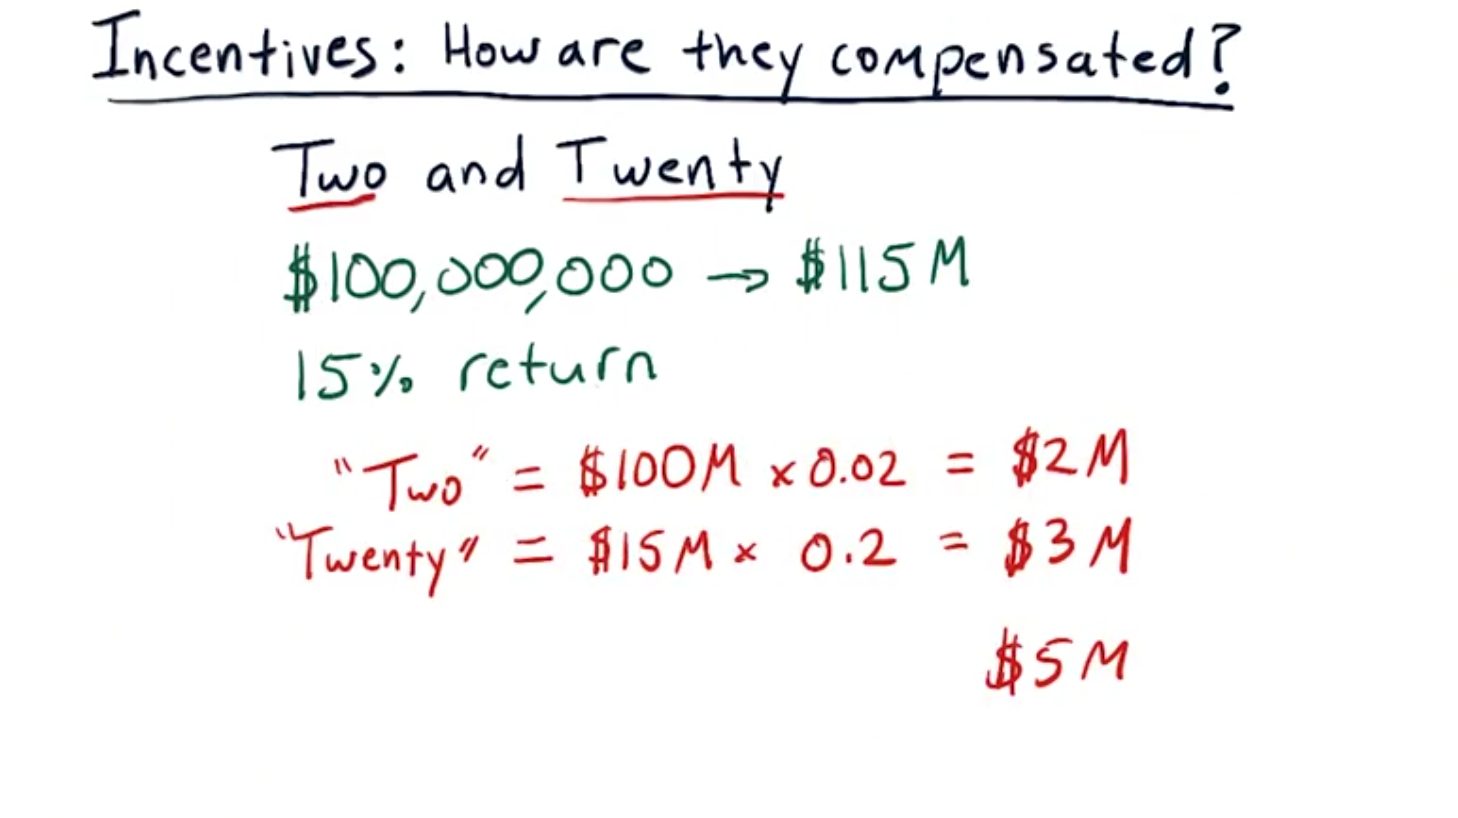 Incentives: How are they compensated?
Two and Twenty
$100,000,000 → $115M
15% return
"Two" = $100M × 0.02 = $2M
"Twenty" = $15M × 0.2 = $3M
$5M